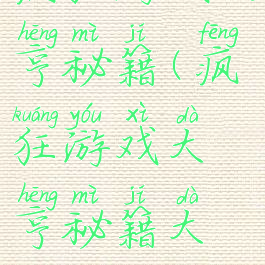 hēng mì jí fēng
亨秘籍(疯
kuáng yóu xì dà
狂游戏大
hēng mì jí dà
亨秘籍大